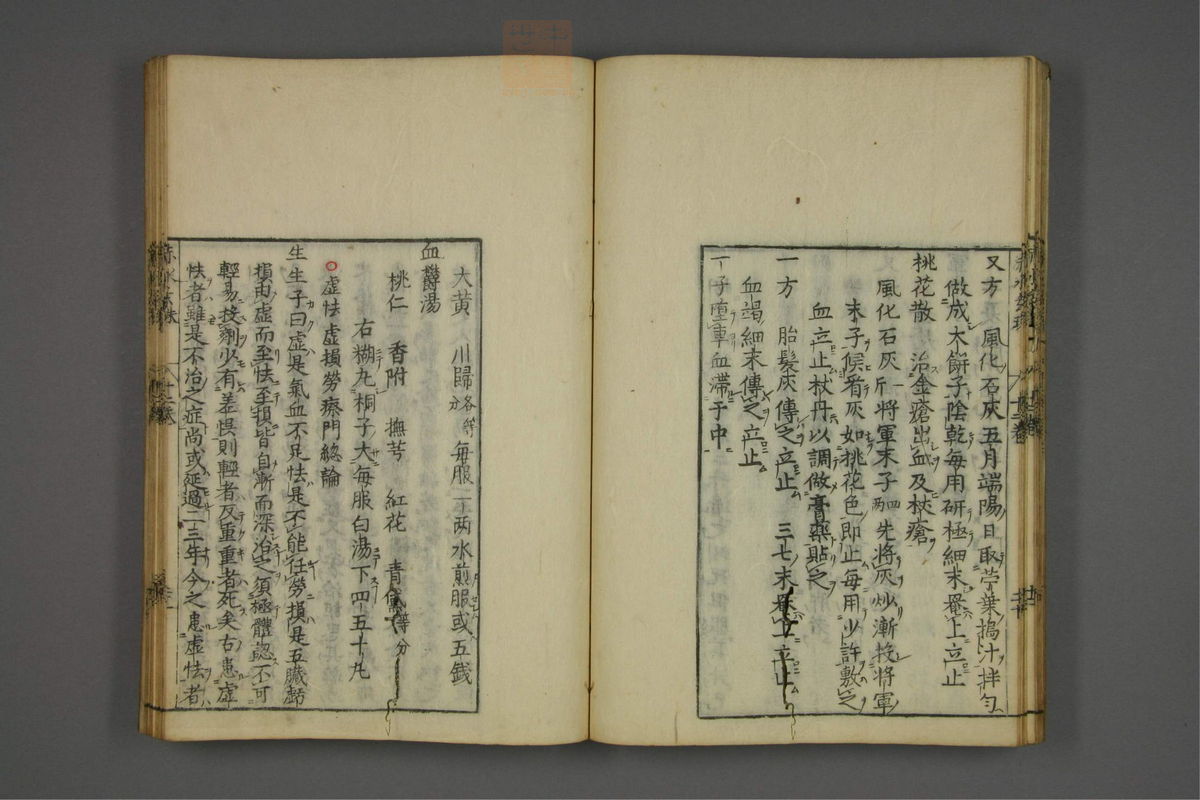 又方　風化石灰五月端陽日取苧葉搗汁拌勻
做成大餅子陰乾每用研極細末罨上立止
桃花散　治金瘡出血及杖瘡
風化石灰一斤將軍末子四兩先將灰炒漸投將軍
末子候看灰如桃花色即止每用少許敷之
血立止杖丹以調做膏藥貼之
一方　胎髮灰傅之立止　三七末罨上立止
血竭細末傅之立止
丁子墮車血滯于中
大黃　川歸各等分每服一两水煎服或五錢
血鬱湯
桃仁　香附　撫芎　紅花　青黛等分
右糊丸桐子大每服白湯下四五十丸
○虛怯虛損勞瘵門總論
生生子曰虛是氣血不足怯是不能任勞損是五臟虧
損由虛而至怯至損皆自漸而深治之須極體認不可
輕易投劑少有差悞則輕者反重重者死矣古患虛
怯者雖是不治之症尚或延過二三年今之患虛怯者